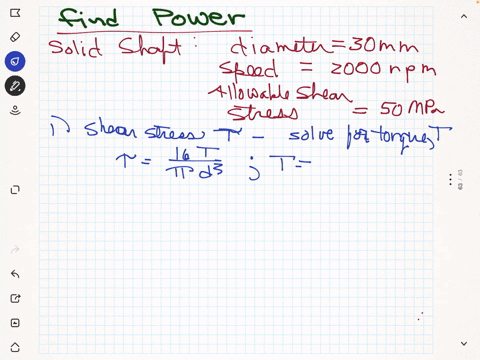 find Power
Solid Shaft: diameter = 30mm
speed = 2000 rpm
Allowable Shear
stress = 50 MPa
1) shear stress τ - solve for torque, T
τ = 16 T / π d³ ; T =
63 / 63